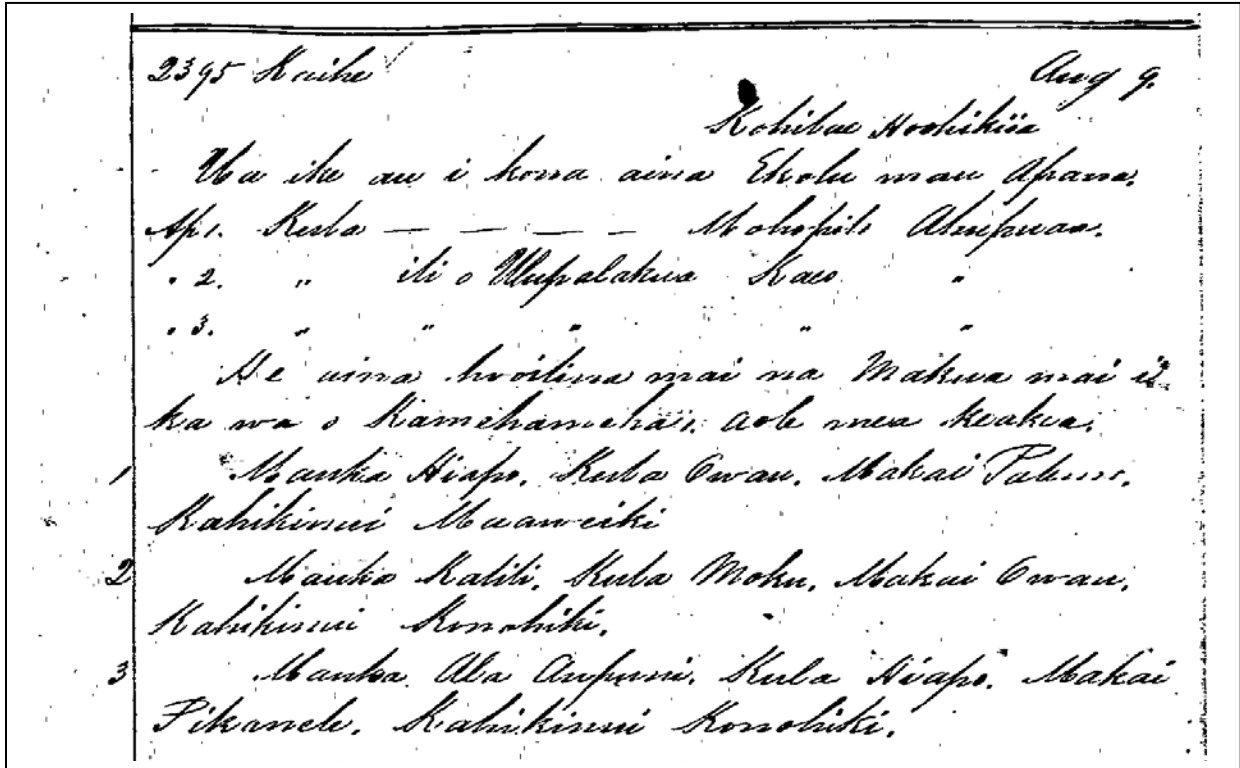 2395 Kaihe Aug 9.
Kohilae Hoohikiia
Ua ike au i kona aina Ekolu mau Apana.
Ap 1. Kula — — — — Mohopilo Ahupuaa.
" 2. " ili o Ulupalakua Kaeo "
" 3. " " " " "
He aina hooilina mai na Makua mai i
ka wa o Kamehameha 1. aole mea keakea.
1 Mauka Hiapo. Kula Owau. Makai
Kahikinui
2 Mauka Kalili. Kula Moku. Makai Owau.
Kahikinui Konohiki.
3 Mauka Ala Aupuni. Kula Hiapo. Makai
Pikanele. Kahikinui Konohiki.